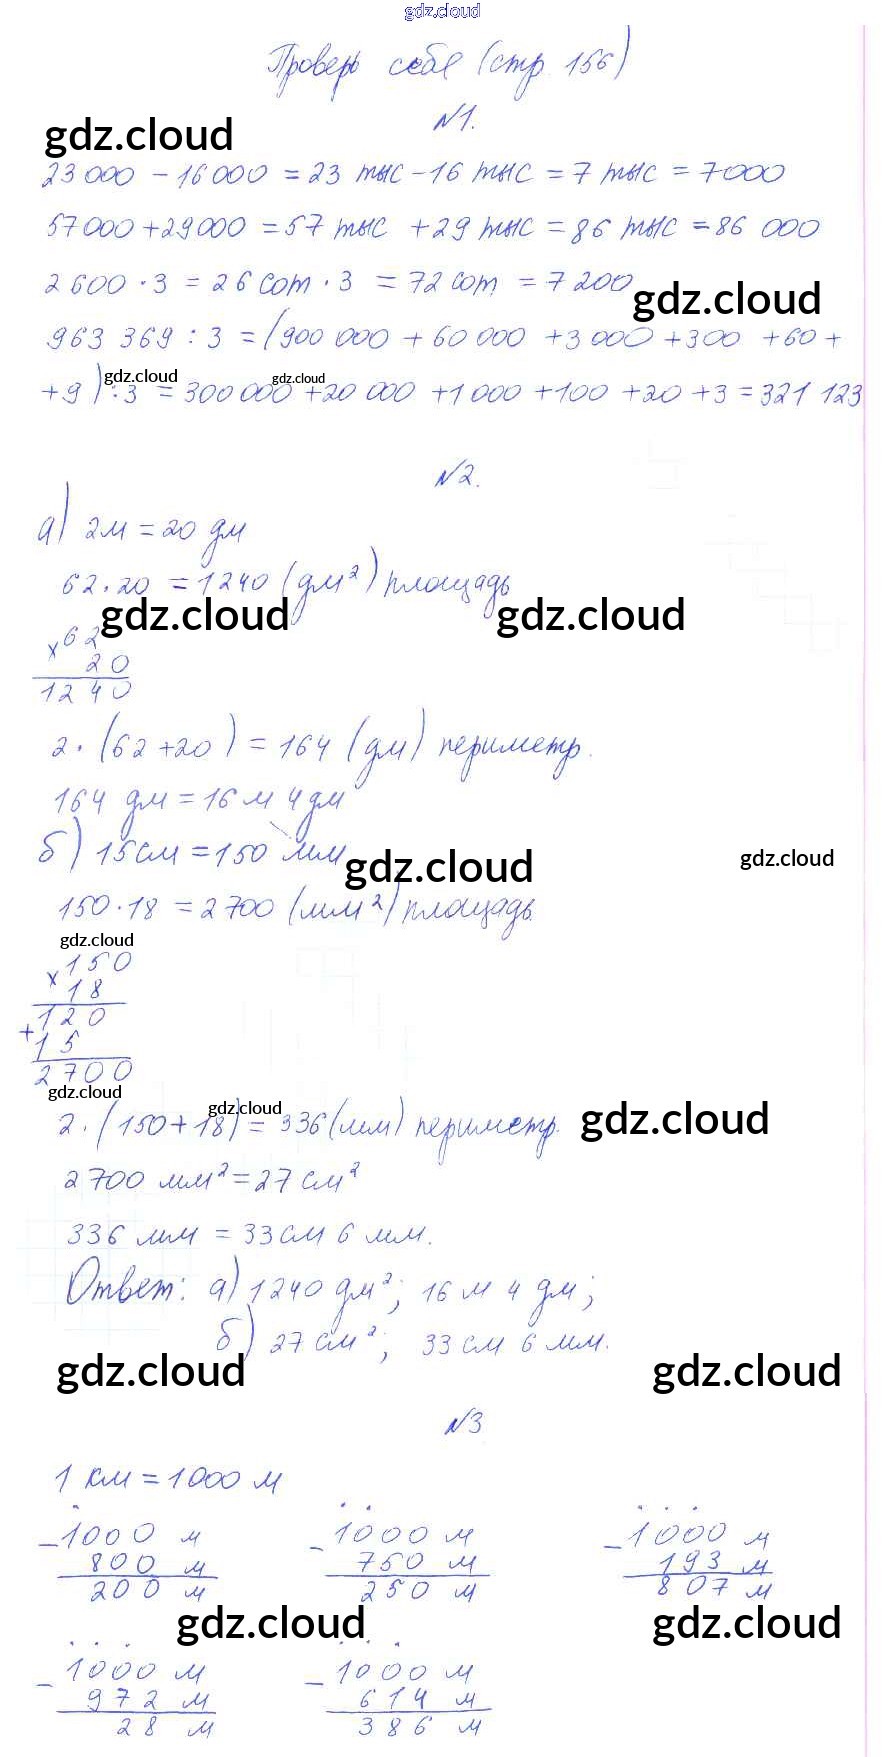 gdz.cloud
Проверь себя (стр. 156)
№1.
gdz.cloud
23 000 - 16 000 = 23 тыс - 16 тыс = 7 тыс = 7000
57 000 + 29 000 = 57 тыс + 29 тыс = 86 тыс = 86 000
2 600 · 3 = 26 сот · 3 = 72 сот = 7 200
gdz.cloud
963 369 : 3 = (900 000 + 60 000 + 3 000 + 300 + 60 +
gdz.cloud gdz.cloud
+ 9) : 3 = 300 000 + 20 000 + 1 000 + 100 + 20 + 3 = 321 123
№2.
а) 2м = 20 дм
62 · 20 = 1240 (дм²) площадь
gdz.cloud gdz.cloud
× 62
20
1240
2 · (62 + 20) = 164 (дм) периметр.
164 дм = 16 м 4 дм
б) 15 см = 150 мм
gdz.cloud gdz.cloud
150 · 18 = 2 700 (мм²) площадь.
gdz.cloud
× 150
18
120
+ 15
2700
gdz.cloud
gdz.cloud
2 · (150 + 18) = 336 (мм) периметр.
gdz.cloud
2 700 мм² = 27 см²
336 мм = 33 см 6 мм.
Ответ: а) 1240 дм²; 16 м 4 дм;
б) 27 см²; 33 см 6 мм.
gdz.cloud gdz.cloud
№3
1 км = 1000 м
- 1000 м - 1000 м - 1000 м
800 м 750 м 193 м
200 м 250 м 807 м
gdz.cloud gdz.cloud
- 1000 м - 1000 м
972 м 614 м
28 м 386 м